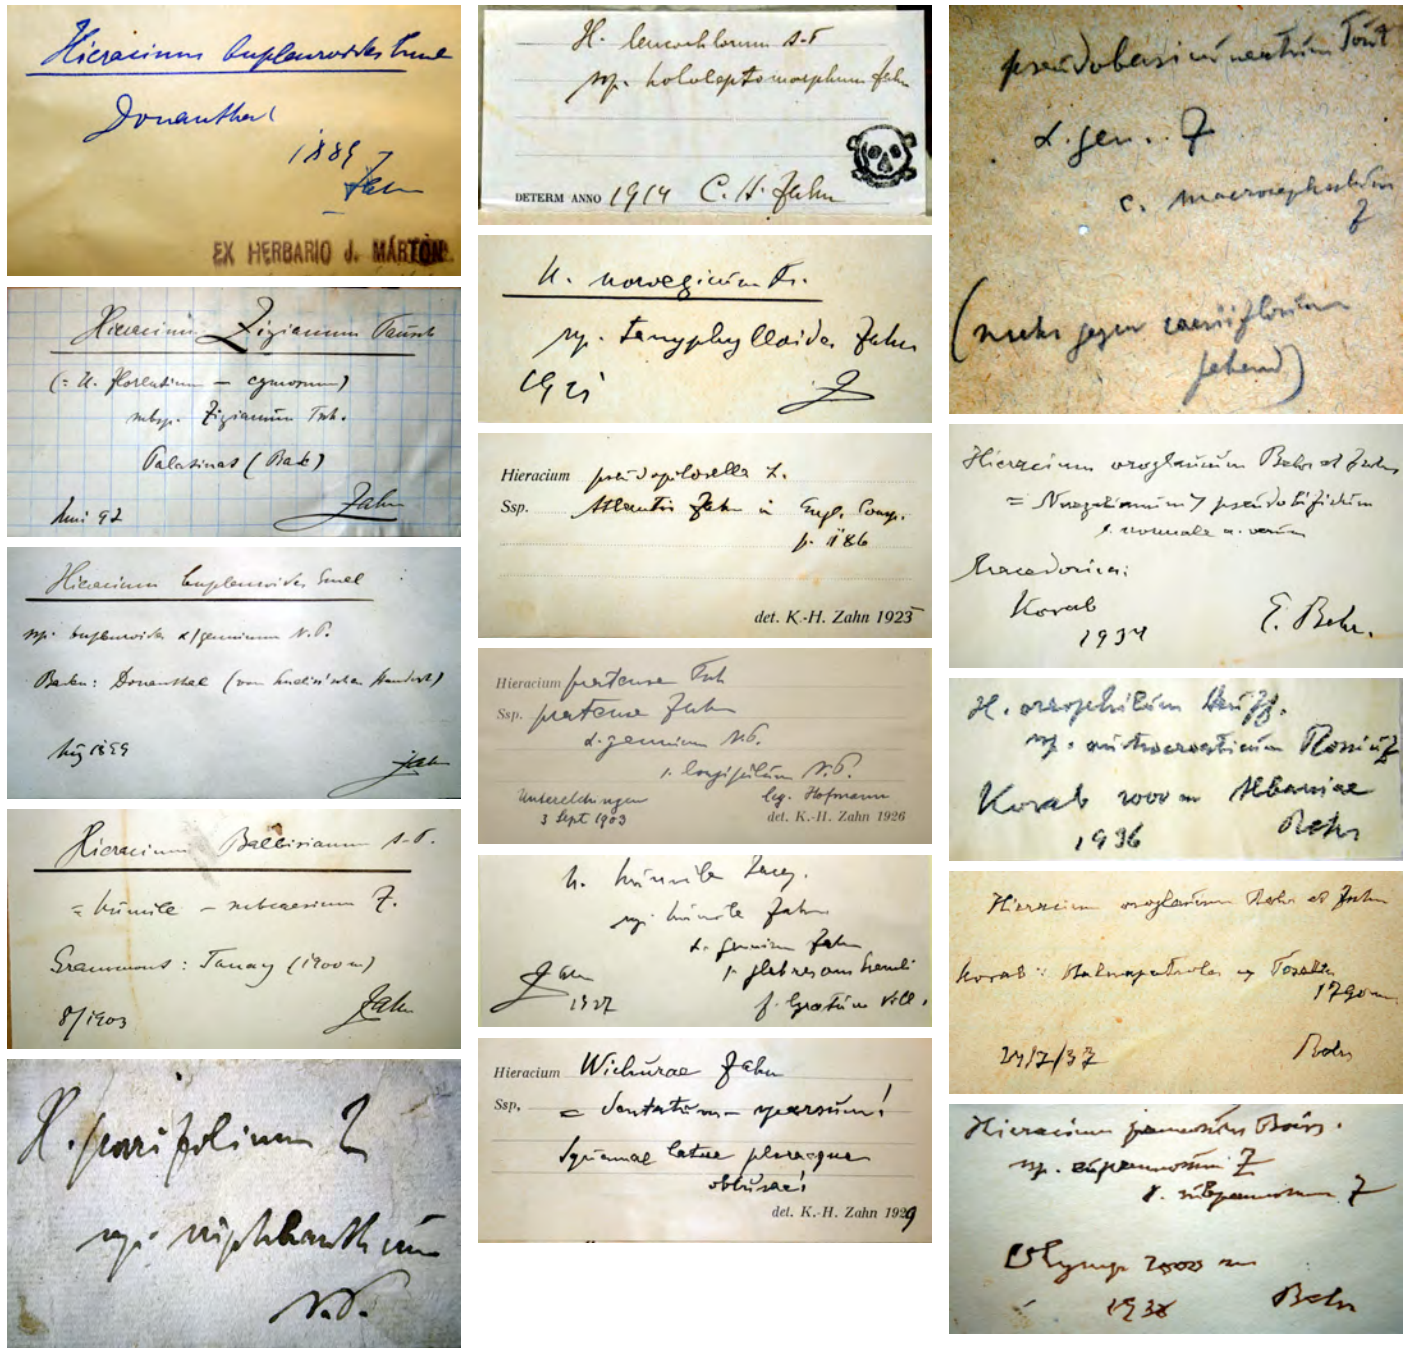 Hieracium bupleuroides Gmel
Donauthal
1889
Zahn
EX HERBARIO J. MÁRTON
Hieracium Zizianum Tausch
(= H. florentinum — cymosum)
subsp. Zizianum Tsch.
Palatinat (Bak)
Juni 92
Zahn
Hieracium bupleuroides Gmel
ssp. bupleuroides α) genuinum N.P.
Baden: Donauthal
Aug 1899
Zahn
Hieracium Balbisianum A-T.
= humile — subcaesium Z.
Grammont: Tanay (1900m)
8/1903
Zahn
H.
ssp.
N.P.
H. leucochlorum A-T
ssp. hololeptomorphum Zahn
DETERM ANNO 1914 C. H. Zahn
H. norvegicum Fr.
ssp. tanyphylloides Zahn
Z
Hieracium pseudopilosella T.
Ssp. Atlantis Zahn in Engl. Comp.
p. 1186
det. K.-H. Zahn 1923
Hieracium pratense Tsch
Ssp. pratense Zahn
α. genuinum N.P.
1. longipilum N.P.
Unterelchingen leg. Hofmann
3 Sept 1903 det. K.-H. Zahn 1926
H. humile Jacq.
ssp. humile Zahn
α. genuinum Zahn
1. glabrescens
Zahn
1927 f. lyratum Vill.
Hieracium Wichurae Zahn
Ssp. = dentatum — sparsum!
Squamae latae pleraeque
obtusae!
det. K.-H. Zahn 1929
α. gen. Z
c. macrocephalum
Z
(mehr gegen caesiiflorum
gehend)
Hieracium oroglaucum Behr et Zahn
= Naegelianum > pseudobifidum
1. normale a. verum
Macedonia:
Korab
1937
E. Behr.
H. oreophilum
ssp.
Korab 2000 m Albaniae
1936 Behr
Hieracium oroglaucum Behr et Zahn
Korab:
1790m
24/7/37 Behr
Hieracium pannosum Boiss.
ssp. eupannosum Z
γ. subpannosum Z
Olymp 2000 m
Behr